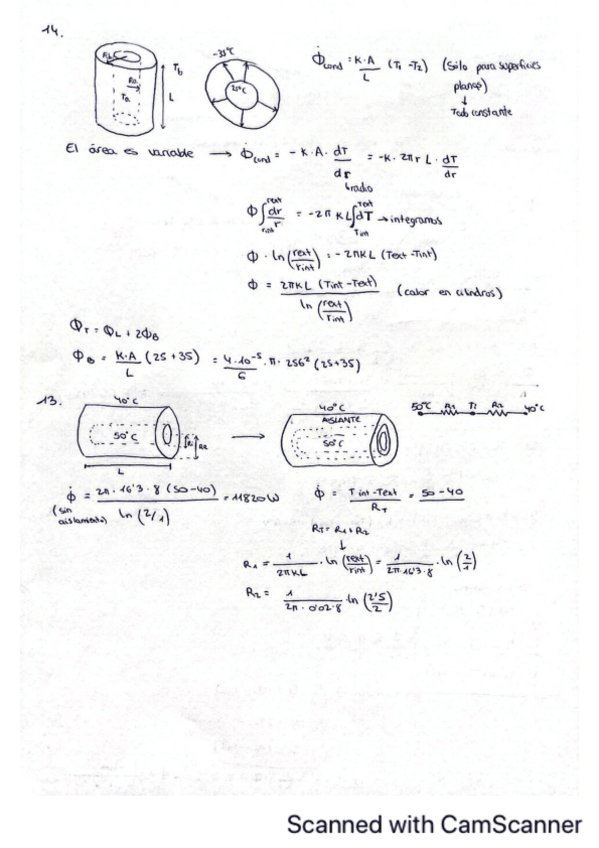 14.
R1
R2
T2
Tb
L
-35°C
25°C
Φ̇cond = K·A/L (T1 - T2) (Sólo para superficies planas)
↓
Todo constante
El área es variable → Φ̇cond = -K·A· dT/dr = -K· 2πr L · dT/dr
radio
Φ ∫rint^rext dr/r = -2π KL ∫Tint^Text dT → integramos
Φ · ln(rext/rint) = - 2πKL (Text-Tint)
Φ = 2πKL (Tint-Text) / ln(rext/rint) (calor en cilindros)
ΦT = ΦL + 2ΦB
ΦB = K·A/L (25+35) = 4·10⁻⁵·π·256²/6 (25+35)
13.
40°C
50°C
R1
R2
L
→
40°C
AISLANTE
50°C
50°C R1 T1 R2 40°C
Φ̇ = 2π·16'3·8 (50-40) / ln(2/1) = 11820W
(sin aislamiento)
Φ̇ = Tint-Text / RT = 50-40
RT = R1+R2
↓
R1 = 1/2πKL · ln(rext/rint) = 1/2π·16'3·8 · ln(2/1)
R2 = 1/2π·0'02·8 · ln(2'5/2)
Scanned with CamScanner